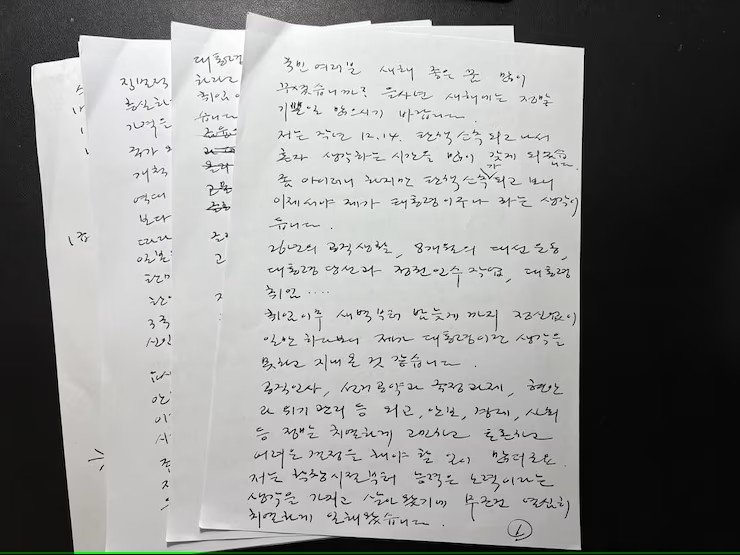 직접적
충실하
가격은
적가
개척
역대
보다
따라
일본
한미
한
3국
대통령
하라고
취임
습니다
국민 여러분 새해 좋은 꿈 많이
꾸셨습니까? 을사년 새해에는 정말
기쁜일 많으시기 바랍니다.
저는 작년 12.14. 탄핵소추 되고 나서
혼자 생각하는 시간을 많이 갖게 되었습니다.
좀 아이러니 하지만 탄핵소추가 되고 보니
이제서야 제가 대통령이구나 하는 생각이
듭니다.
26년의 공직 생활, 8개월의 대선 운동,
대통령 당선과 정권 인수 작업, 대통령
취임....
취임이후 새벽부터 밤늦게 까지 정신없이
일만 하다보니 제가 대통령이란 생각을
못하고 지내온 것 같습니다.
공직인사, 선거공약과 국정과제, 현안
과 위기관리 등 외교, 안보, 경제, 사회
등 정말 치열하게 고민하고 토론하고
어려운 결정을 해야 할 일이 많더군요.
저는 학창시절부터 능력은 노력이라는
생각을 가지고 살아왔기에 무조건 열심히
치열하게 일해왔습니다.
①